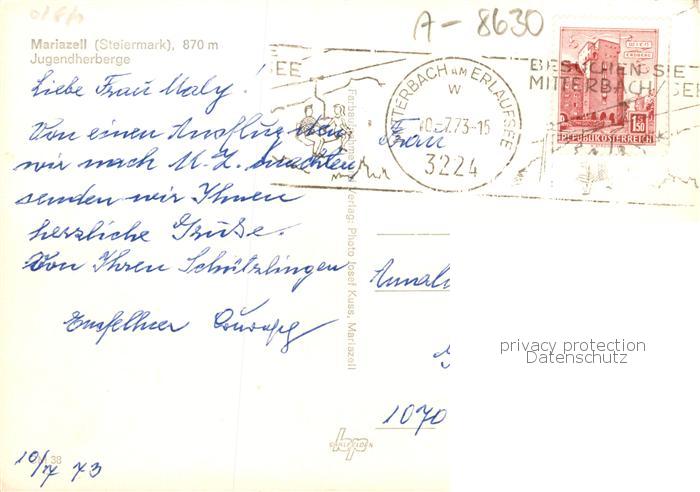 A-8630
Mariazell (Steiermark), 870 m
Jugendherberge
Liebe Frau Maly!
Von einen Ausflug den
wir nach M.Z. machten
senden wir Ihnen
herzliche Grüße.
Von Ihren Schützlingen
10/7 73
38
Verlag: Photo Josef Kuss, Mariazell
MITTERBACH AM ERLAUFSEE
W
10.-7.73-15
3224
SEE
BESUCHEN SIE
MITTERBACH/SEE
WIEN
ERDBERG
1.50
REPUBLIK ÖSTERREICH
Frau
1070
privacy protection
Datenschutz